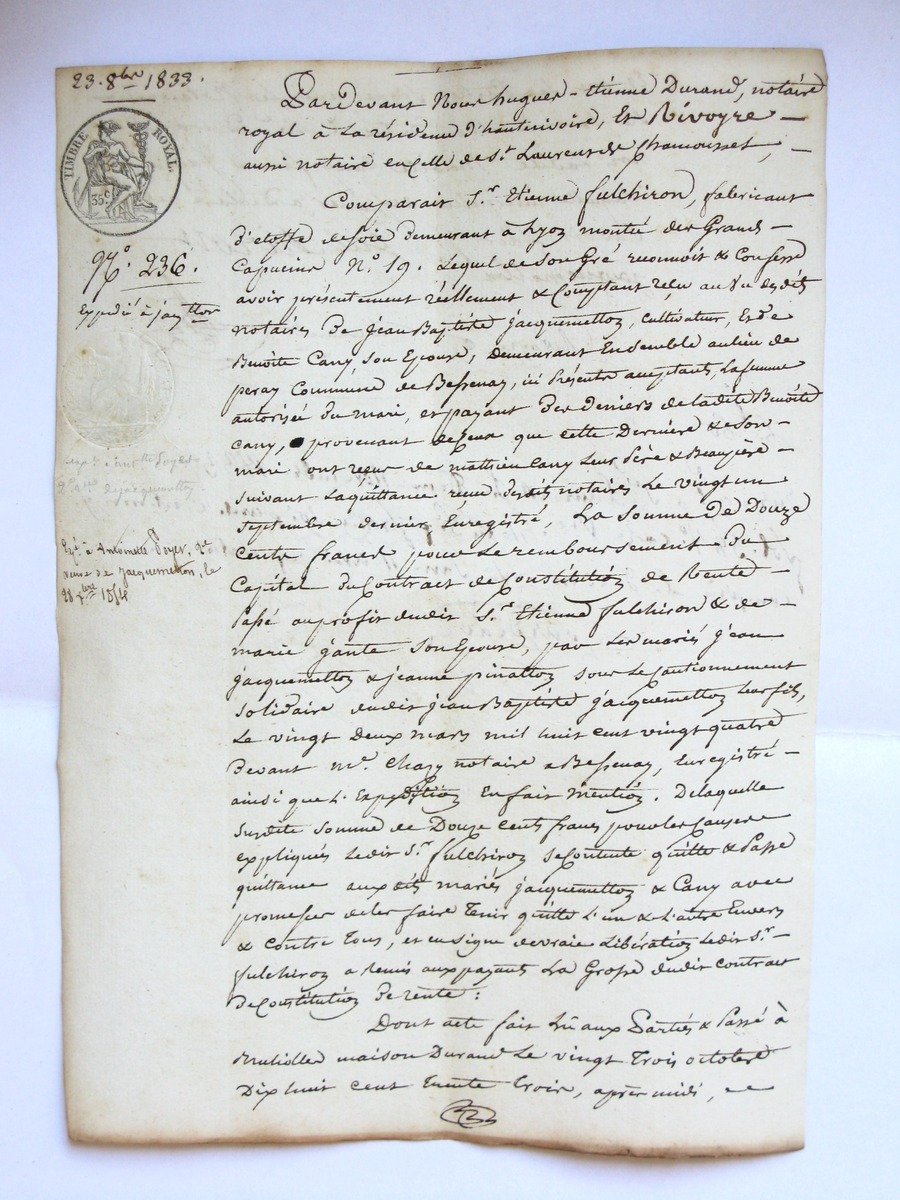 23. 8bre 1833.
TIMBRE ROYAL.
35c
N.° 236.
Expédié à jacqtton
Exp. à Antoinette Poyet, Ve
veuve de Jacquemetton, le
28 1854
Pardevant Nous hugues-Etienne Durand, notaire
royal à La résidence d'hauterivoire, Et Rivoyre —
aussi notaire en celle de St. Laurent de Chamousset, —
Comparait Sr. Etienne fulchiron, fabricant
d'étoffe de soie demeurant à Lyon montée des Grands
Capucins N.° 19. Lequel de son Gré reconnoit & Confesse
avoir présentement réellement & Comptant reçu au Vu desdits
notaires de jean Baptiste jacquemetton, cultivateur, Et de
Benoîte Cany, son Epouse, demeurant Ensemble au lieu de
peray Commune de Bessenay, ici Présents acceptants, La femme
autorisée du mari, et payant des deniers de ladite Benoîte
Cany, provenant de Ceux que cette Dernière & son
mari ont reçus de mathieu Cany Leur Père & Beaupère —
suivant La quittance reçue desdits notaires Le vingt un
septembre dernier Enregistré, La somme de Douze
Cents francs pour Le remboursement du
Capital du Contrat de Constitution de Rente —
Passé au profit dudit Sr. Etienne fulchiron & de —
marie gante son Epouse, par Les mariés jean
jacquemetton & jeanne pinatton sous Le Cautionnement
solidaire dudit jean Baptiste jacquemetton leur fils,
Le vingt Deux mars mil huit cent vingt quatre
Devant Me. Chazy notaire a Bessenay, Enregistré —
ainsi que L'Expédition En fait Mention. De laquelle
susdite somme de Douze Cents francs pour les Causes
expliqués Ledit Sr. fulchiron se Contente quitte & Passe
quittance auxdits mariés jacquemetton & Cany avec
promesse de les faire Tenir quitte L'un & L'autre Envers
& Contre Tous, et en signe de vraie Libération Ledit Sr. —
fulchiron a Remis aux payants La Grosse dudit contrat
de Constitution de rente :
Dont acte fait Lu aux Parties & Passé à
maison Durand Le vingt Trois octobre
Dix huit cent Trente Trois, après midi,